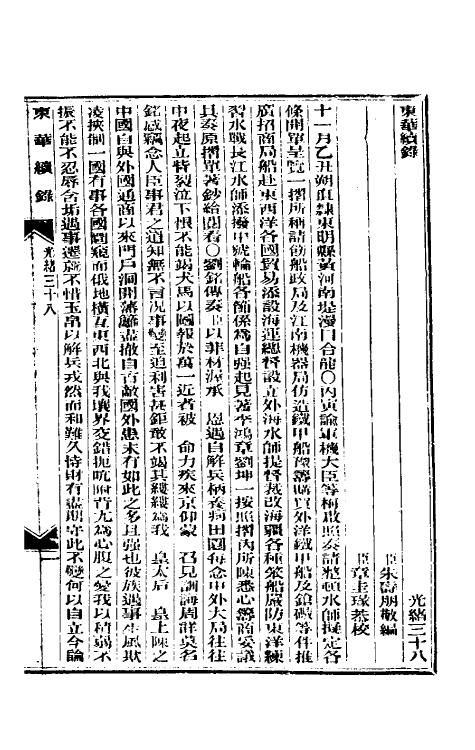 東華續錄 光緒三十八
臣朱壽朋敬編
臣章圭瑑恭校
十一月乙丑朔直隸東明縣黃河南堤漫口合龍○丙寅諭軍機大臣等梅啟照奏請整頓水師擬定各
條開單呈覽一摺所稱請飭船政局及江南機器局仿造鐵甲船豫籌購買外洋鐵甲船及鎗礮等件推
廣招商局船赴東西洋各國貿易添設海運總督設立外海水師提督裁改海疆各種笨船嚴防東洋練
習水戰長江水師添撥中號輪船各節係為自強起見著李鴻章劉坤一按照摺內所陳悉心籌商妥議
具奏原摺單著鈔給閱看○劉銘傳奏臣以菲材渥承 恩遇自解兵柄養疴田園每念中外大局往往
中夜起立眥裂泣下恨不能竭犬馬以圖報於萬一近者被 命力疾來京仰蒙 召見訓誨周詳莫名
銘感竊念人臣事君之道知無不言況事變至迫利害甚鉅敢不竭其縷縷為我 皇太后 皇上陳之
中國自與外國通商以來門戶洞開藩籬盡撤自古敵國外患未有如此之多且強也彼族遇事生風欺
凌挾制一國有事各國圜窺而俄地橫亙東西北與我壤界交錯扼吭拊背尤為心腹之憂我以積弱不
振不能不忍辱含垢遇事遷就不惜玉帛以解兵戎然而和難久恃財有盡期守此不變何以自立今論
東華續錄 光緒三十八 一